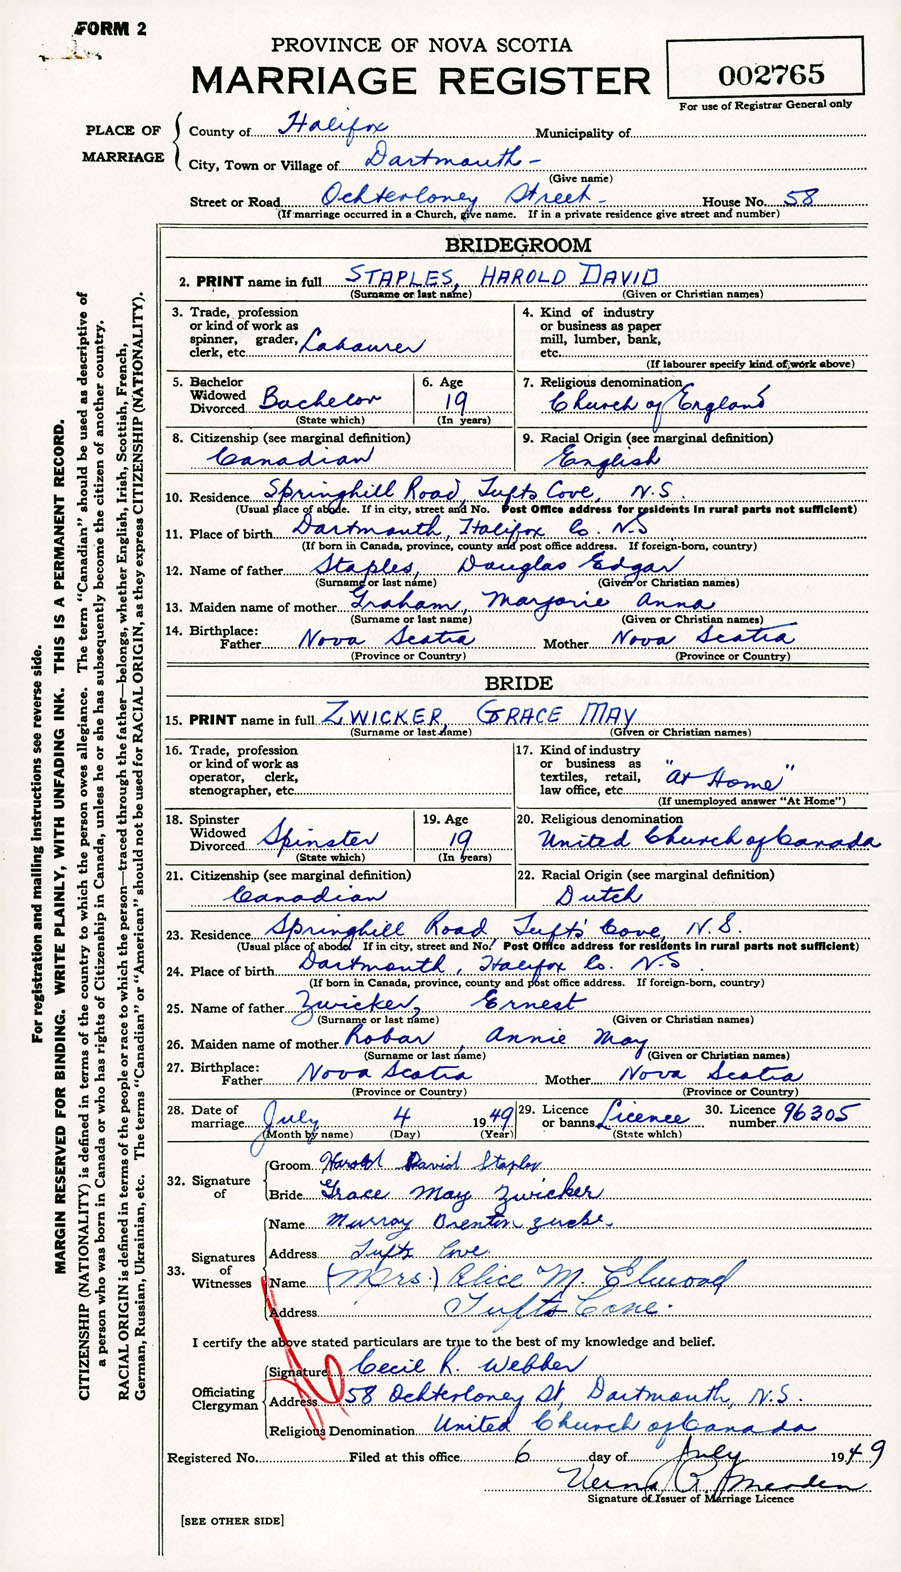 FORM 2
PROVINCE OF NOVA SCOTIA
MARRIAGE REGISTER
002765
For use of Registrar General only
PLACE OF MARRIAGE
County of Halifax Municipality of
City, Town or Village of Dartmouth -
(Give name)
Street or Road Ochterloney Street - House No. 58
(If marriage occurred in a Church, give name. If in a private residence give street and number)
BRIDEGROOM
2. PRINT name in full STAPLES, HAROLD DAVID
(Surname or last name) (Given or Christian names)
3. Trade, profession
or kind of work as
spinner, grader,
clerk, etc. Labourer
4. Kind of industry
or business as paper
mill, lumber, bank,
etc.
(If labourer specify kind of work above)
5. Bachelor
Widowed
Divorced Bachelor
(State which)
6. Age
19
(In years)
7. Religious denomination
Church of England
8. Citizenship (see marginal definition)
Canadian
9. Racial Origin (see marginal definition)
English
10. Residence Springhill Road, Tufts Cove, N.S.
(Usual place of abode. If in city, street and No. Post Office address for residents in rural parts not sufficient)
11. Place of birth Dartmouth, Halifax Co. N.S
(If born in Canada, province, county and post office address. If foreign-born, country)
12. Name of father Staples, Douglas Edgar
(Surname or last name) (Given or Christian names)
13. Maiden name of mother Graham, Marjorie Anna
(Surname or last name) (Given or Christian names)
14. Birthplace:
Father Nova Scotia Mother Nova Scotia
(Province or Country) (Province or Country)
BRIDE
15. PRINT name in full ZWICKER, GRACE MAY
(Surname or last name) (Given or Christian names)
16. Trade, profession
or kind of work as
operator, clerk,
stenographer, etc.
17. Kind of industry
or business as
textiles, retail,
law office, etc. "At Home"
(If unemployed answer "At Home")
18. Spinster
Widowed
Divorced Spinster
(State which)
19. Age
19
(In years)
20. Religious denomination
United Church of Canada
21. Citizenship (see marginal definition)
Canadian
22. Racial Origin (see marginal definition)
Dutch
23. Residence Springhill Road, Tufts' Cove, N.S.
(Usual place of abode. If in city, street and No. Post Office address for residents in rural parts not sufficient)
24. Place of birth Dartmouth, Halifax Co. N.S.
(If born in Canada, province, county and post office address. If foreign-born, country)
25. Name of father Zwicker, Ernest
(Surname or last name) (Given or Christian names)
26. Maiden name of mother Robar, Annie May
(Surname or last name) (Given or Christian names)
27. Birthplace:
Father Nova Scotia Mother Nova Scotia
(Province or Country) (Province or Country)
28. Date of
marriage July 4 1949
(Month by name) (Day) (Year)
29. Licence
or banns Licence
(State which)
30. Licence
number 96305
32. Signature of
Groom Harold David Staples
Bride Grace May Zwicker
33. Signatures of Witnesses
Name Murray Brenton
Address Tufts Cove
Name (Mrs.) Alice M. Elwood
Address Tufts Cove.
I certify the above stated particulars are true to the best of my knowledge and belief.
Officiating Clergyman
Signature Cecil R. Webber
Address 58 Ochterloney St, Dartmouth, N.S.
Religious Denomination United Church of Canada
Registered No. Filed at this office 6 day of July 1949
Verna R.
Signature of Issuer of Marriage Licence
[SEE OTHER SIDE]
For registration and mailing instructions see reverse side.
MARGIN RESERVED FOR BINDING. WRITE PLAINLY, WITH UNFADING INK. THIS IS A PERMANENT RECORD.
CITIZENSHIP (NATIONALITY) is defined in terms of the country to which the person owes allegiance. The term "Canadian" should be used as descriptive of
a person who was born in Canada or who has rights of Citizenship in Canada, unless he or she has subsequently become the citizen of another country.
RACIAL ORIGIN is defined in terms of the people or race to which the person—traced through the father—belongs, whether English, Irish, Scottish, French,
German, Russian, Ukrainian, etc. The terms "Canadian" or "American" should not be used for RACIAL ORIGIN, as they express CITIZENSHIP (NATIONALITY).